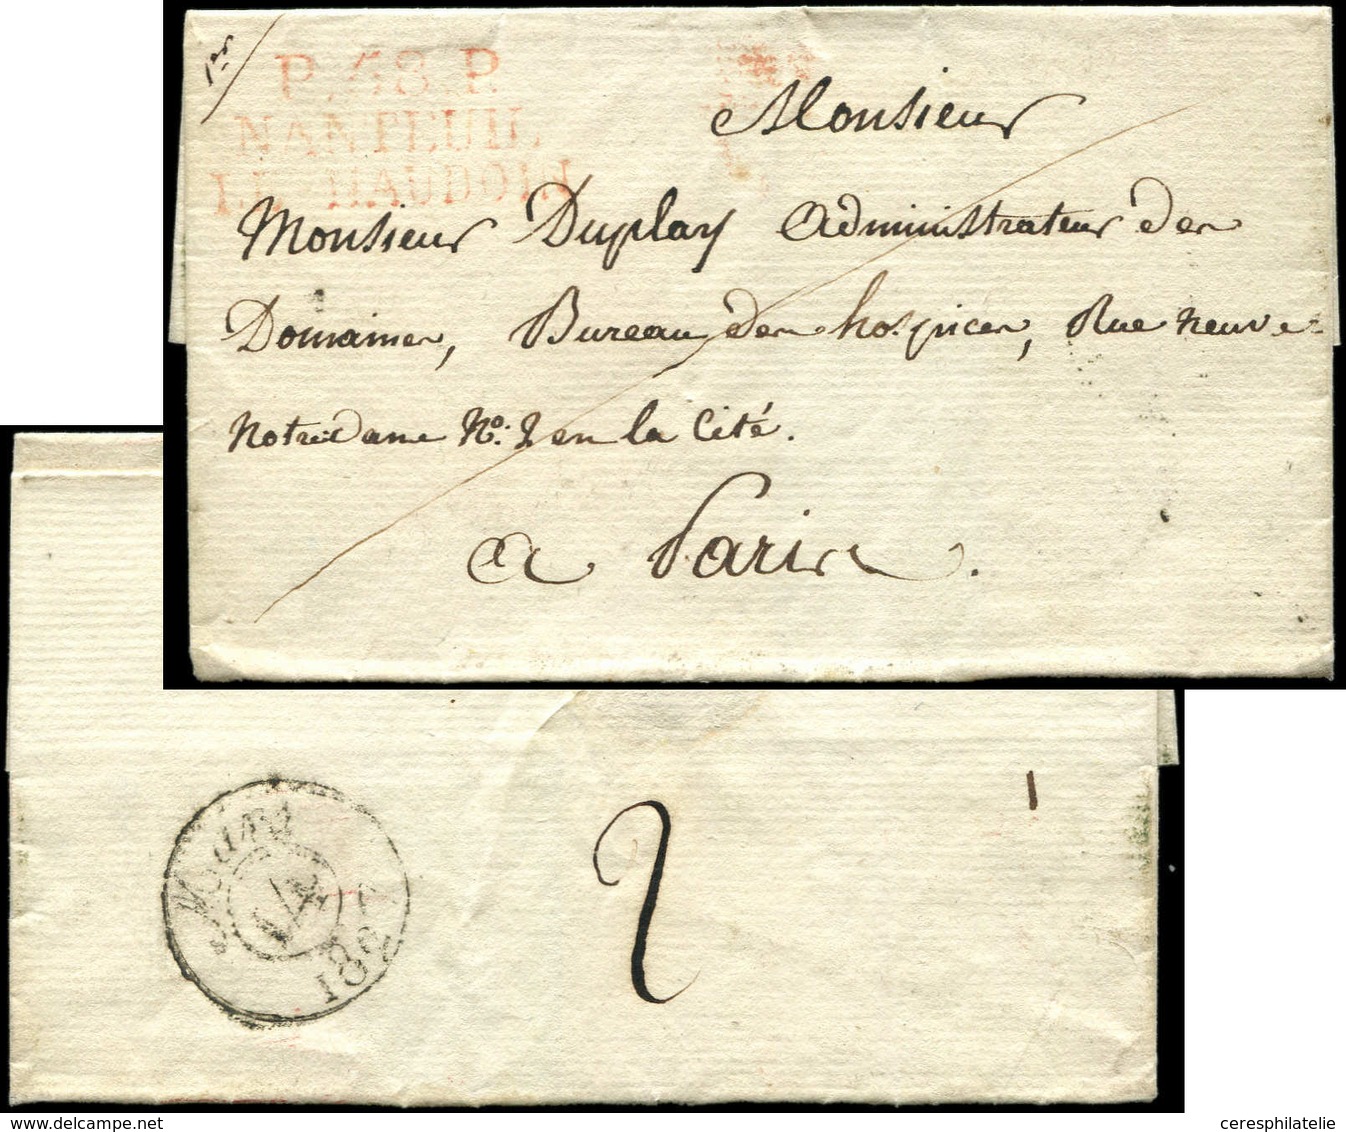 1er
P.58.P.
NANTEUIL
LE HAUDOIN
Monsieur
Monsieur Duplay Administrateur des
Domaines, Bureau des hospices, Rue neuve-
Notredame No. 2 en la Cité.
a Paris.
2
ceresphilatelie